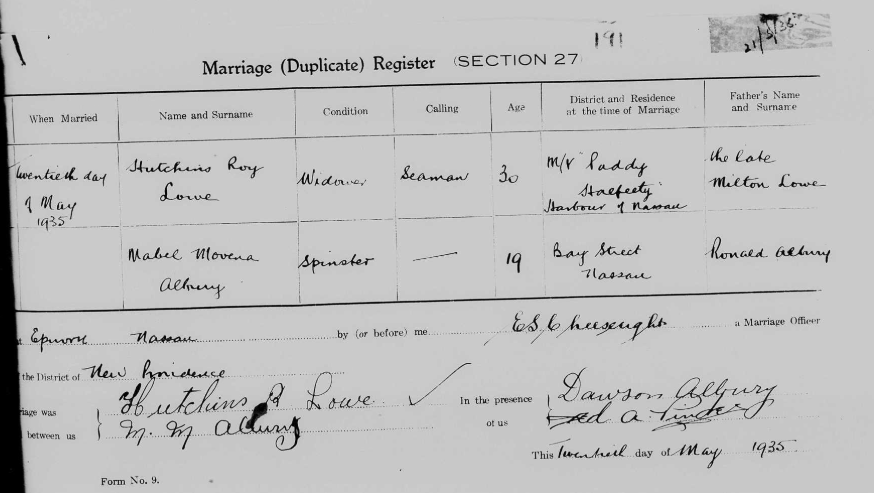 191
21/5/35
Marriage (Duplicate) Register (SECTION 27)
When Married
Name and Surname
Condition
Calling
Age
District and Residence
at the time of Marriage
Father's Name
and Surname
Twentieth day
of May
1935
Hutchins Roy
Lowe
Widower
Seaman
30
M/V Paddy
Harbour of Nassau
the late
Milton Lowe
Mabel Movena
Albury
Spinster
19
Bay Street
Nassau
Ronald Albury
Epworth Nassau by (or before) me a Marriage Officer
the District of New Providence
riage was
between us
Hutchins R Lowe
M. M Albury
In the presence
of us
Dawson Albury
This Twentieth day of May 1935
Form No. 9.